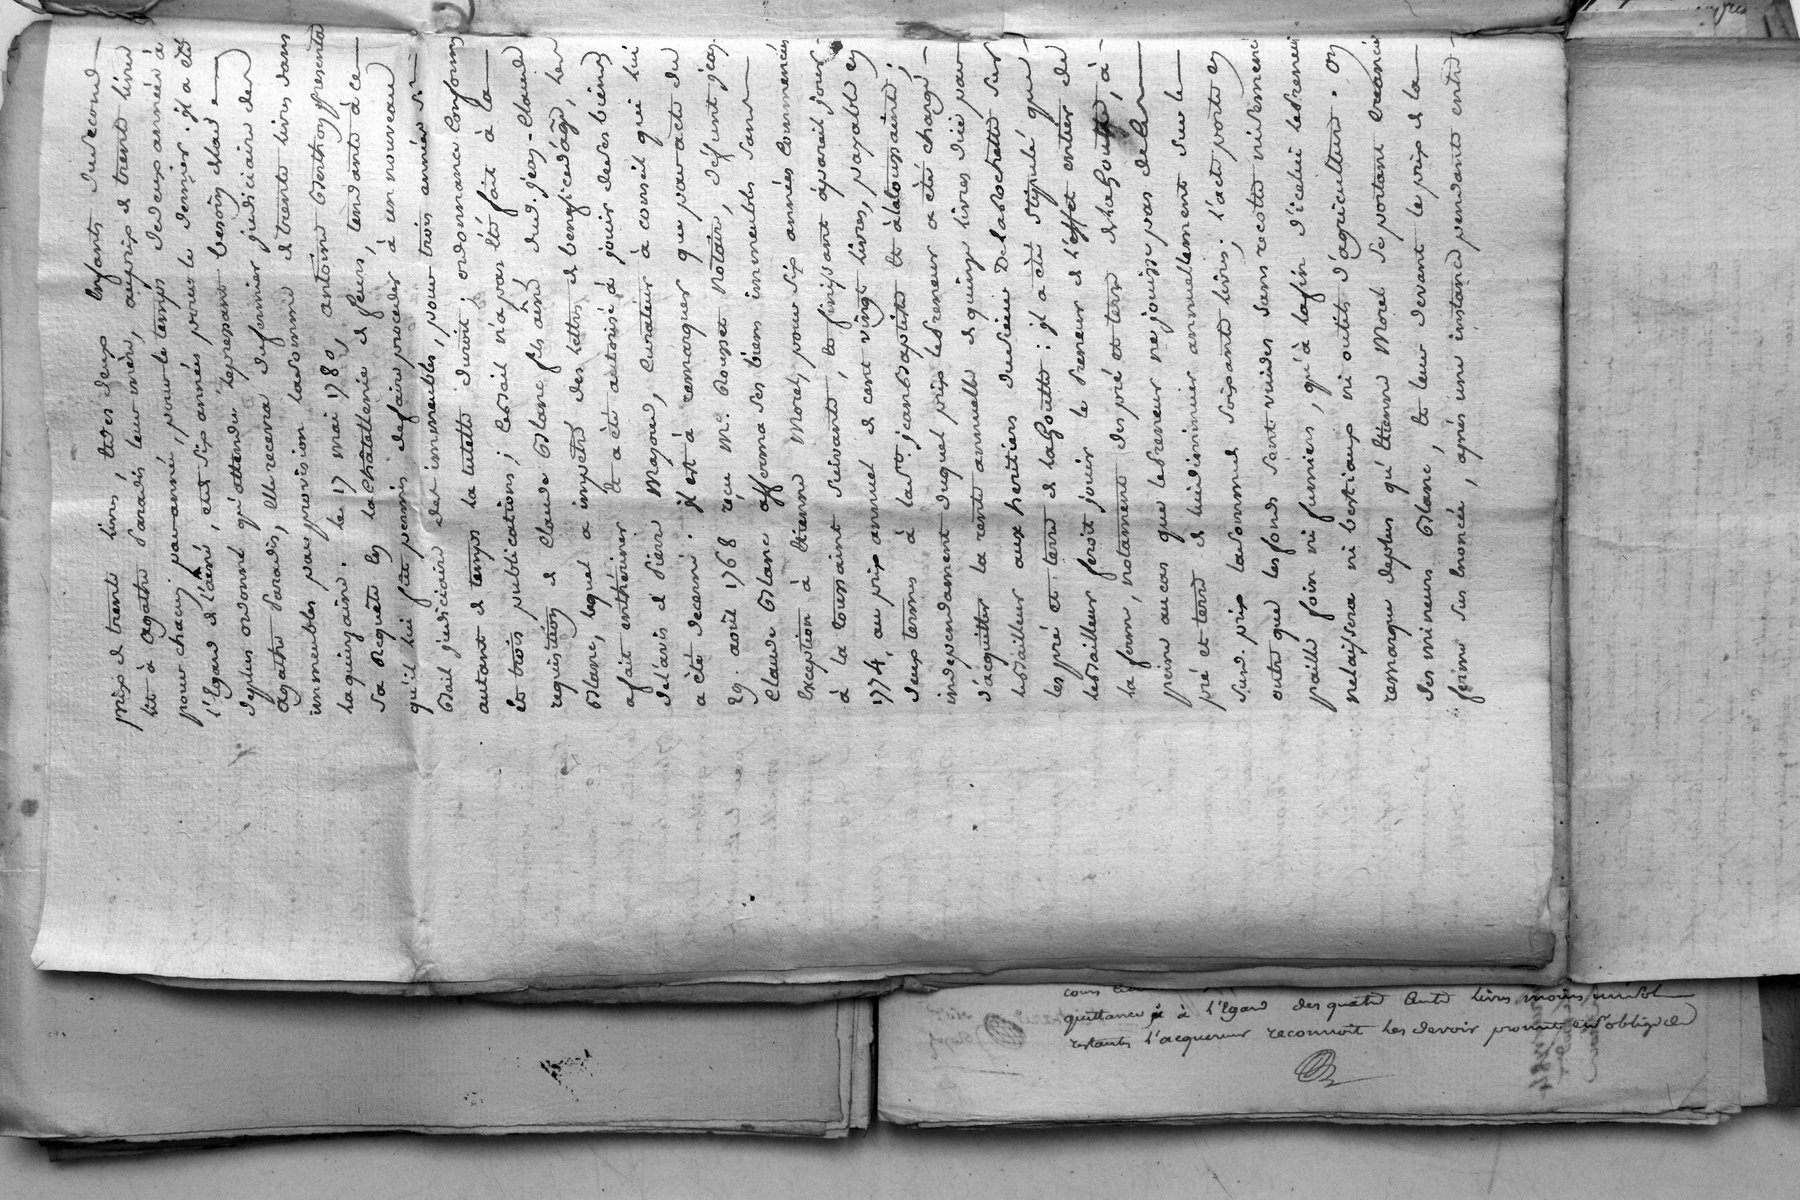 prix de trente livres, et des deux Enfants du second
lit à agathe Paradis leur mère, au prix de trente livres
pour chacun par année, pour le temps de deux années à
l'Egard de l'ainé, et de six années pour le dernier. il a été
de plus ordonné qu'attendu le pressant besoin
agathe Paradis, Elle recevra du fermier judiciaire des
immeubles par provision la somme de trente livres dans
la quinzaine. le 17 mai 1780, antoine Berthoy presenta
sa Requête en la Châtellenie de feurs, tendante à ce
qu'il lui fût permis de faire proceder à un nouveau
Bail judiciaire des immeubles, pour trois années si
autant de temps la tutelle duroit; ordonnance conforme
et trois publications; le Bail n'a pas été fait à la
requisition de Claude Blanc fils aîné dud. jean-Claude
Blanc, lequel a impetré des lettres de benefice d'âge, les
a fait enthériner Et a été autorisé à jouir de ses biens
de l'avis de Pierre Majour, Curateur à conseil qui lui
a été decerné. il est à remarquer que par acte du
29. août 1768 reçu Me. Rousset Notaire, défunt jean
Claude Blanc afferma ses biens immeubles sans
Exception à Etienne Morel, pour six années commencées
à la toussaint suivante, et finissant à pareil jour
1774, au prix annuel de cent vingt livres, payable en
deux termes à la St. jean Baptiste Et à la toussaint;
independament duquel prix le Preneur a été chargé
d'acquitter la rente annuelle de quinze livres due par
le Bailleur aux heritiers du sieur Delarochette sur
les pré et terre de la Goutte: il a été stipulé que
le Bailleur feroit jouir le Preneur de l'effet entier de
la ferme, notament des pré et terre de la Goutte, à
peine au cas que le Preneur ne jouisse pas de
pré et terre de lui diminuer annuellement sur le
susd. prix la somme de soixante livres; l'acte porte en
outre que les fonds sont vuides sans recolte ni semence
paille foin ni fumiers, qu'à la fin d'icelui le Preneur
ne laissera ni bestiaux ni outils d'agriculture. on
remarque de plus qu'Etienne Morel se portant creancier
des mineurs Blanc, Et leur devant le prix de la
ferme sus Enoncée, après une instance pendante entre
quittance et à l'Egard des quatre Cents livres moins un sol
restants l'acquereur reconnoit les devoir promet et s'oblige de